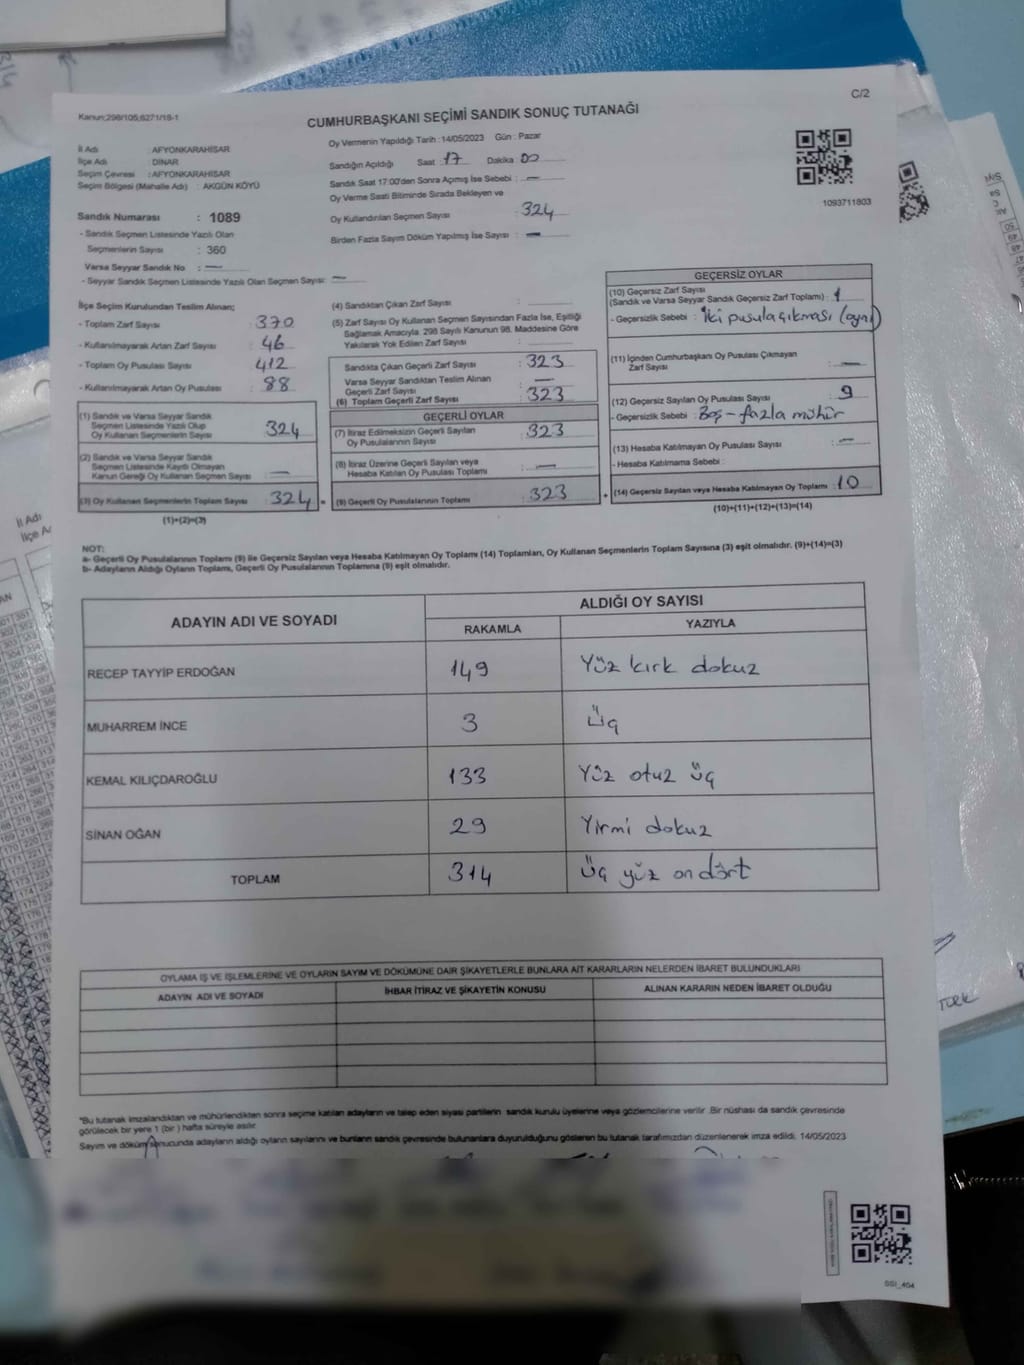 C/2
Kanun;298/105;6271/18-1
CUMHURBAŞKANI SEÇİMİ SANDIK SONUÇ TUTANAĞI
İl Adı : AFYONKARAHİSAR
İlçe Adı : DİNAR
Seçim Çevresi : AFYONKARAHİSAR
Seçim Bölgesi (Mahalle Adı) : AKGÜN KÖYÜ
Oy Vermenin Yapıldığı Tarih : 14/05/2023 Gün : Pazar
Sandığın Açıldığı Saat : 17 Dakika : 00
Sandık Saat 17:00'den Sonra Açmış İse Sebebi : —
Oy Verme Saati Bitiminde Sırada Bekleyen ve
Oy Kullandırılan Seçmen Sayısı : 324
Birden Fazla Sayım Döküm Yapılmış İse Sayısı : —
1093711803
Sandık Numarası : 1089
- Sandık Seçmen Listesinde Yazılı Olan
Seçmenlerin Sayısı : 360
Varsa Seyyar Sandık No : —
- Seyyar Sandık Seçmen Listesinde Yazılı Olan Seçmen Sayısı: —
İlçe Seçim Kurulundan Teslim Alınan;
- Toplam Zarf Sayısı : 370
- Kullanılmayarak Artan Zarf Sayısı : 46
- Toplam Oy Pusulası Sayısı : 412
- Kullanılmayarak Artan Oy Pusulası : 88
(1) Sandık ve Varsa Seyyar Sandık
Seçmen Listesinde Yazılı Olup
Oy Kullanan Seçmenlerin Sayısı : 324
(2) Sandık ve Varsa Seyyar Sandık
Seçmen Listesinde Kayıtlı Olmayan
Kanun Gereği Oy Kullanan Seçmen Sayısı : —
(3) Oy Kullanan Seçmenlerin Toplam Sayısı : 324 =
(1)+(2)=(3)
(4) Sandıktan Çıkan Zarf Sayısı :
(5) Zarf Sayısı Oy Kullanan Seçmen Sayısından Fazla İse, Eşitliği
Sağlamak Amacıyla, 298 Sayılı Kanunun 98. Maddesine Göre
Yakılarak Yok Edilen Zarf Sayısı :
Sandıkta Çıkan Geçerli Zarf Sayısı : 323
Varsa Seyyar Sandıktan Teslim Alınan
Geçerli Zarf Sayısı : —
(6) Toplam Geçerli Zarf Sayısı : 323
GEÇERLİ OYLAR
(7) İtiraz Edilmeksizin Geçerli Sayılan
Oy Pusulalarının Sayısı : 323
(8) İtiraz Üzerine Geçerli Sayılan veya
Hesaba Katılan Oy Pusulası Toplamı : —
(9) Geçerli Oy Pusulalarının Toplamı : 323 +
GEÇERSİZ OYLAR
(10) Geçersiz Zarf Sayısı
(Sandık ve Varsa Seyyar Sandık Geçersiz Zarf Toplamı) : 1
- Geçersizlik Sebebi : İki pusula çıkması (aynı)
(11) İçinden Cumhurbaşkanı Oy Pusulası Çıkmayan
Zarf Sayısı : —
(12) Geçersiz Sayılan Oy Pusulası Sayısı : 9
- Geçersizlik Sebebi : Boş-fazla mühür
(13) Hesaba Katılmayan Oy Pusulası Sayısı : —
- Hesaba Katılmama Sebebi :
(14) Geçersiz Sayılan veya Hesaba Katılmayan Oy Toplamı : 10
(10)+(11)+(12)+(13)=(14)
NOT:
a- Geçerli Oy Pusulalarının Toplamı (9) ile Geçersiz Sayılan veya Hesaba Katılmayan Oy Toplamı (14) Toplamları, Oy Kullanan Seçmenlerin Toplam Sayısına (3) eşit olmalıdır. (9)+(14)=(3)
b- Adayların Aldığı Oyların Toplamı, Geçerli Oy Pusulalarının Toplamına (9) eşit olmalıdır.
ADAYIN ADI VE SOYADI ALDIĞI OY SAYISI
RAKAMLA YAZIYLA
RECEP TAYYİP ERDOĞAN 149 Yüz kırk dokuz
MUHARREM İNCE 3 Üç
KEMAL KILIÇDAROĞLU 133 Yüz otuz üç
SİNAN OĞAN 29 Yirmi dokuz
TOPLAM 314 Üç yüz on dört
OYLAMA İŞ VE İŞLEMLERİNE VE OYLARIN SAYIM VE DÖKÜMÜNE DAİR ŞİKAYETLERLE BUNLARA AİT KARARLARIN NELERDEN İBARET BULUNDUKLARI
ADAYIN ADI VE SOYADI İHBAR İTİRAZ VE ŞİKAYETİN KONUSU ALINAN KARARIN NEDEN İBARET OLDUĞU
*Bu tutanak imzalandıktan ve mühürlendikten sonra seçime katılan adayların ve talep eden siyasi partilerin sandık kurulu üyelerine veya gözlemcilerine verilir .Bir nüshası da sandık çevresinde
görülecek bir yere 1 (bir ) hafta süreyle asılır.
Sayım ve döküm sonucunda adayların aldığı oyların sayılarını ve bunların sandık çevresinde bulunanlara duyurulduğunu gösteren bu tutanak tarafımızdan düzenlenerek imza edildi. 14/05/2023
SSI_404